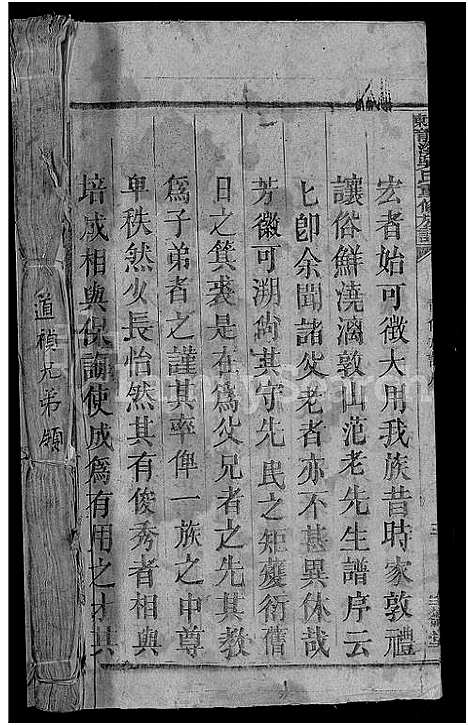 宏者始可徵大用我族昔時家敦禮
讓俗鮮澆漓敦山范老先生譜序云
匕卽余聞諸父老者亦不甚異休哉
芳徽可溯尙其守先民之矩矱衍舊
日之箕裘是在爲父兄者之先其教
爲子弟者之謹其率俾一族之中尊
卑秩然少長怡然其有俊秀者相與
培成相與保諭使成爲有用之才其
道楨兄弟領